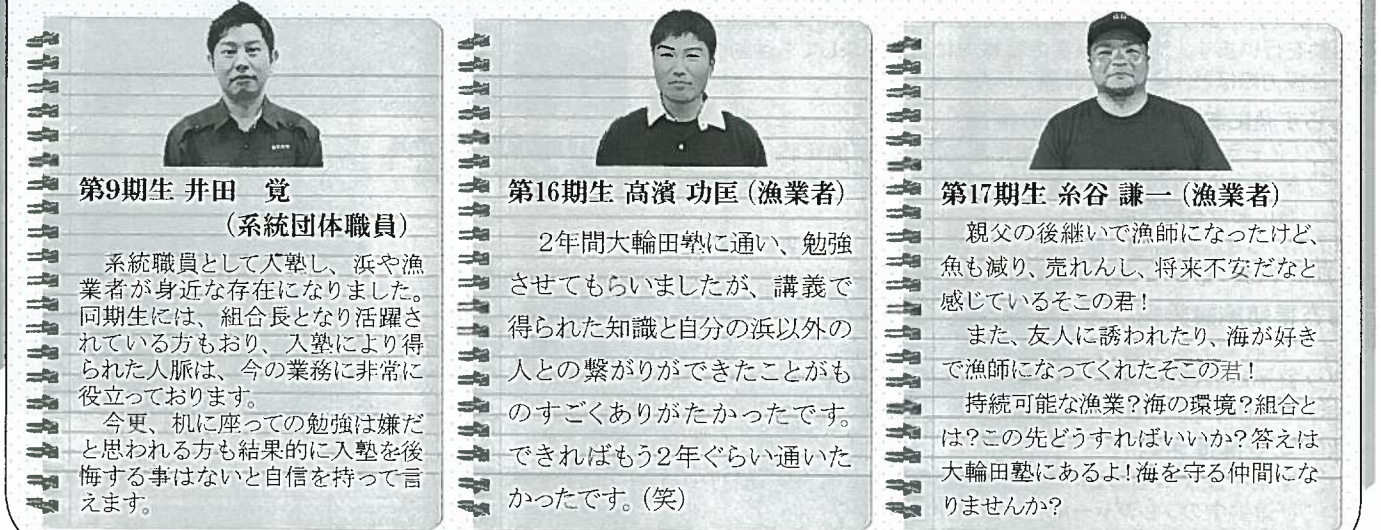 第9期生 井田　覚
（系統団体職員）
系統職員として入塾し、浜や漁
業者が身近な存在になりました。
同期生には、組合長となり活躍さ
れている方もおり、入塾により得
られた人脈は、今の業務に非常に
役立っております。
今更、机に座っての勉強は嫌だ
と思われる方も結果的に入塾を後
悔する事はないと自信を持って言
えます。
第16期生 高濱 功匡（漁業者）
2年間大輪田塾に通い、勉強
させてもらいましたが、講義で
得られた知識と自分の浜以外の
人との繋がりができたことがも
のすごくありがたかったです。
できればもう2年ぐらい通いた
かったです。（笑）
第17期生 糸谷 謙一（漁業者）
親父の後継いで漁師になったけど、
魚も減り、売れんし、将来不安だなと
感じているそこの君！
また、友人に誘われたり、海が好き
で漁師になってくれたそこの君！
持続可能な漁業？海の環境？組合と
は？この先どうすればいいか？答えは
大輪田塾にあるよ！海を守る仲間にな
りませんか？